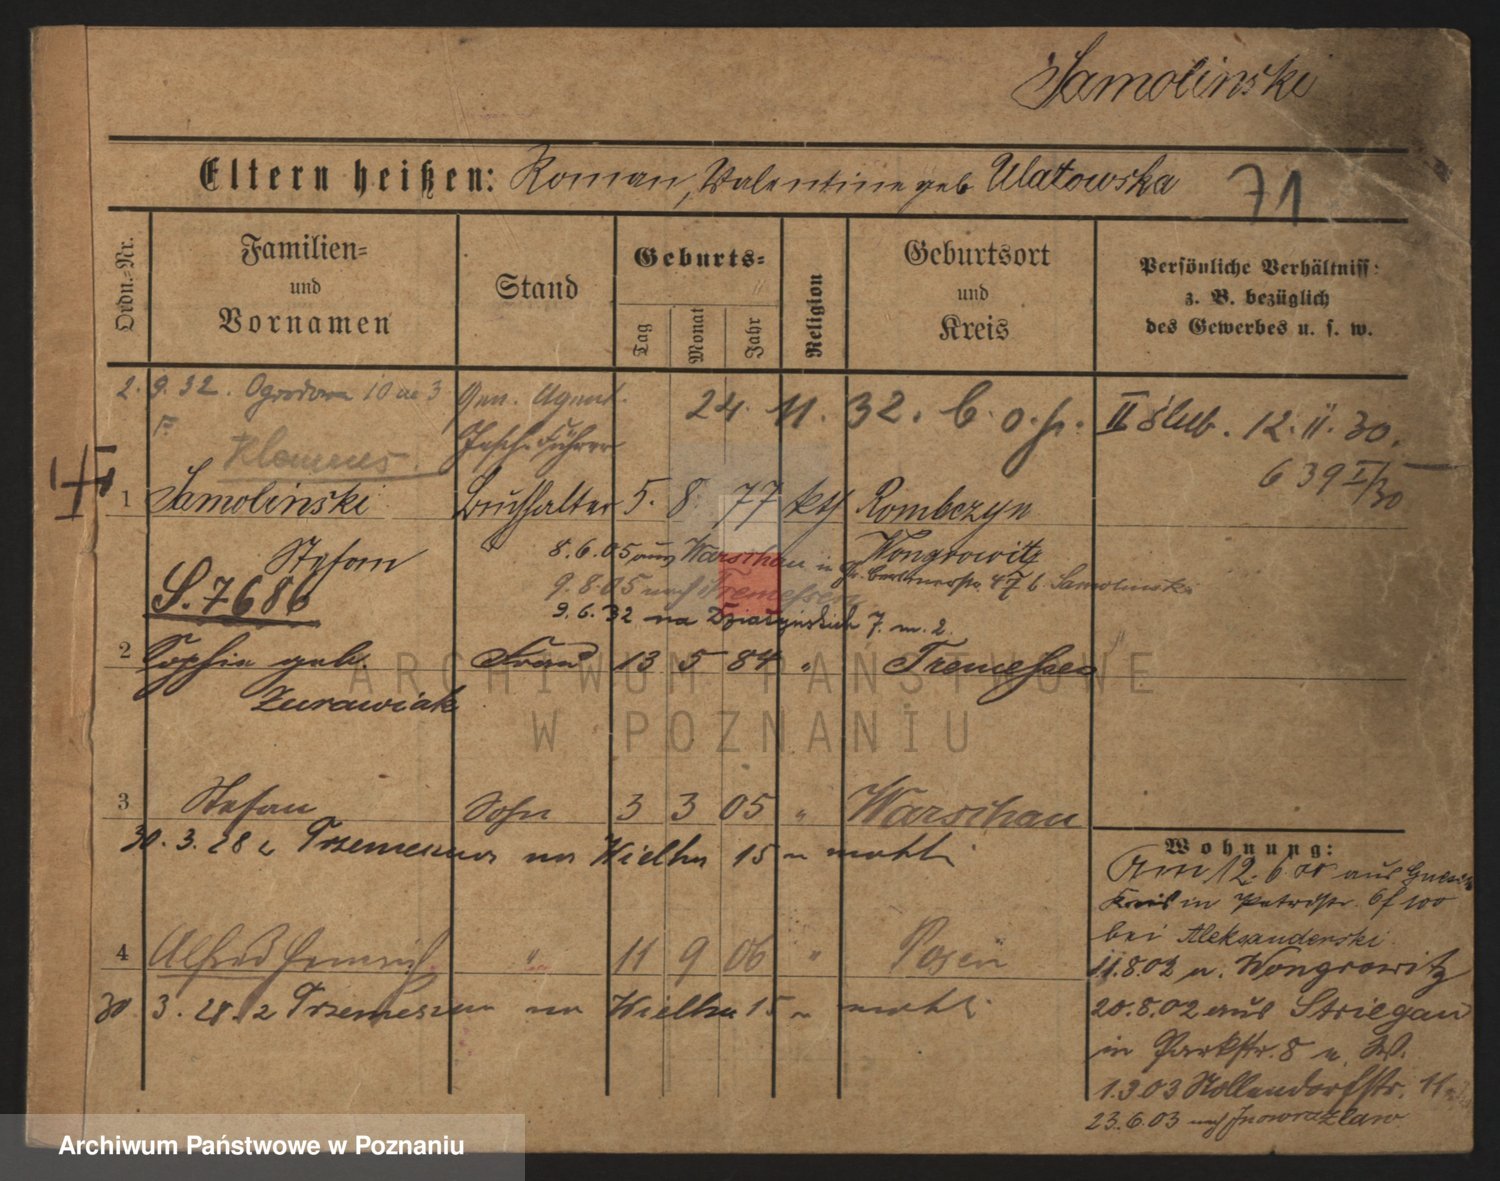 Samolinski
Eltern heißen: Roman, Valentine geb Ulatowska
71
Ordn.-Nr.
Familien-
und
Vornamen
Stand
Geburts-
Tag
Monat
Jahr
Religion
Geburtsort
und
Kreis
Persönliche Verhältniss:
z. B. bezüglich
des Gewerbes u. s. w.
2. 9. 32. Ogrodowa 10 m 3 Gen. Agent. 24. 11. 32. b. o. p. II ślub. 12. II. 30.
639 I/30
Klemens
1 Samolinski Buchhalter 5. 8. 77 kth Rombczyn
Stefan Wongrowitz
8.6.05 aus Warschau in Gr. Berlinerstr. 47 b. Samolinski
S. 7686 9.8.05 nach Tremessen
9.6.32 na Działyńskich 7. m. 2.
2 Sophie geb. Frau 13 5 84 " Tremessen
Zurawiak
3 Stefan Sohn 3 3 05 " Warschau
30. 3. 28 z Trzemeszna na Wielka 15
4 Alfred Heinrich " 11 9 06 " Posen
30. 3. 28. z Trzemeszna na Wielka 15
Wohnung:
Am 12. 6. 00 aus
Kreis in
bei Aleksanderski
11.8.02 n. Wongrowitz
20.8.02 aus Striegau
in Parkstr. 8 n. W.
1.3.03 Nollendorfstr. 11
23.6.03 nach Inowrazlaw
ARCHIWUM PAŃSTWOWE
W POZNANIU
Archiwum Państwowe w Poznaniu